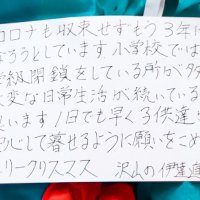 コロナも収束せずもう3年に
なろうとしています。小学校では
学級閉鎖をしている所が多
変な日常生活が続いている
思います。1日でも早く子供達
安心して暮せるように願いをこめ
メリークリスマス 沢山の伊達直